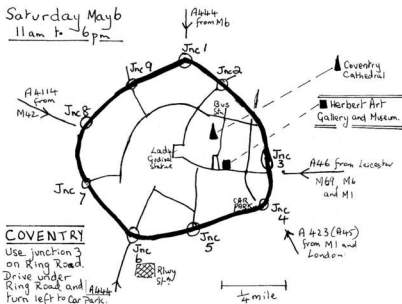 Saturday May 6
11am to 6pm
A444
from M6
Jnc 1
Jnc 9
Jnc 2
Coventry
Cathedral
A4114
from
M42
Jnc 8
Bus
Stn
Herbert Art
Gallery and Museum.
Lady
Godiva
Statue
Jnc
3
A46 from Leicester
M69, M6
and M1
Jnc
7
CAR
PARK
Jnc
4
Jnc
5
Jnc
6
A423 (A45)
from M1 and
London.
COVENTRY
Use junction 3
on Ring Road.
Drive under
Ring Road and
turn left to Car Park.
A444
Rlwy
Stn
1/4 mile